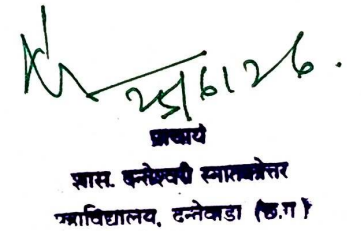 25/6/26.
प्राचार्य
शास. दन्तेश्वरी स्नातकोत्तर
महाविद्यालय, दन्तेवाडा (छ.ग)